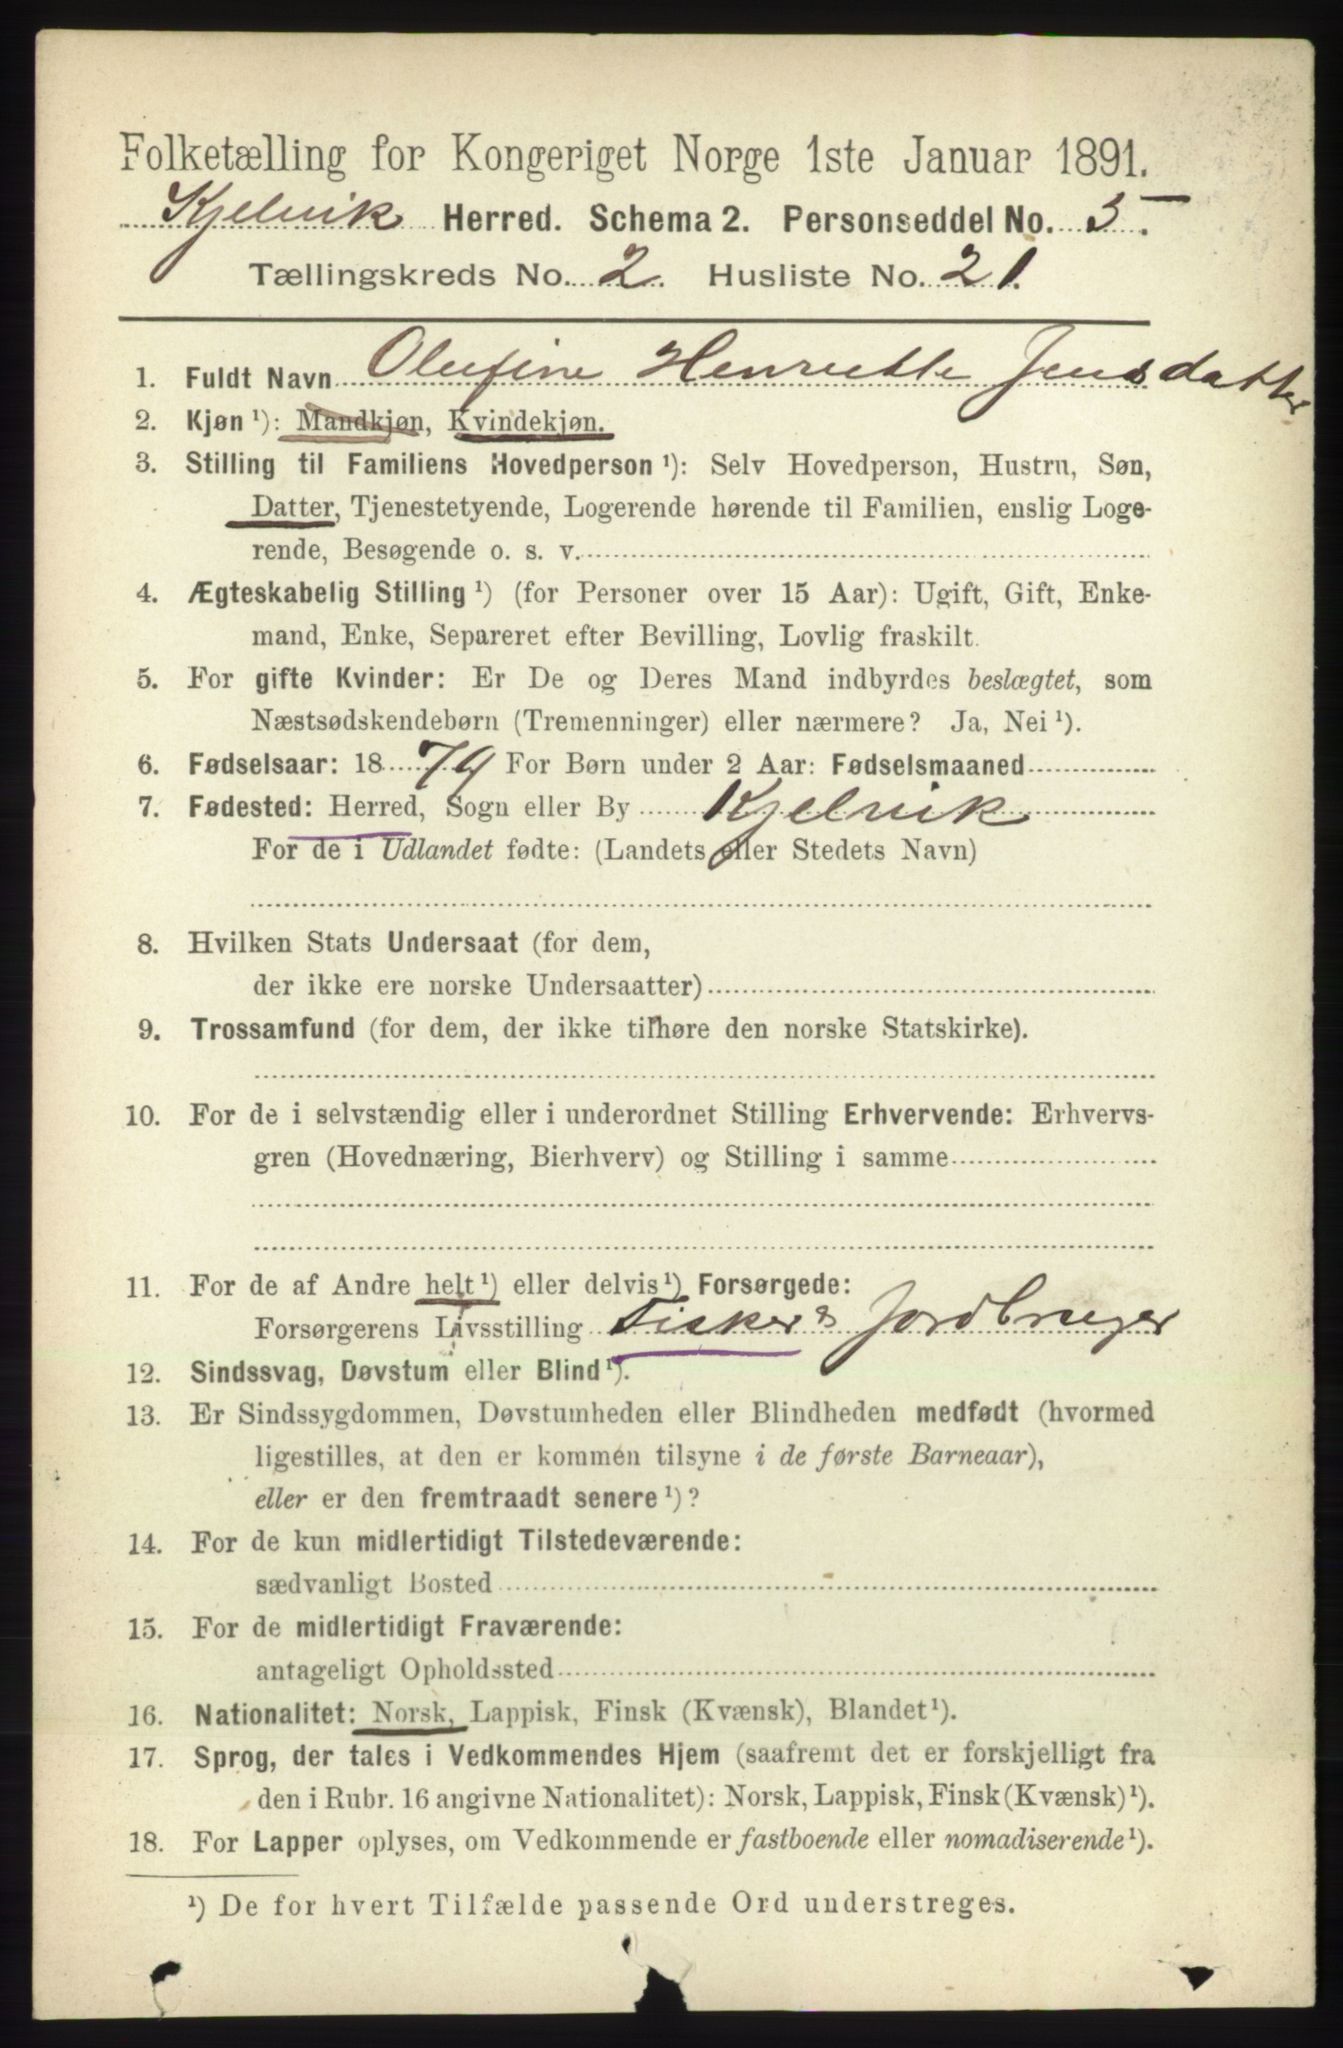 Folketælling for Kongeriget Norge 1ste Januar 1891.
Kjelvik Herred. Schema 2. Personseddel No. 5.
Tællingskreds No. 2. Husliste No. 21.
1. Fuldt Navn Olufine Henriette Jensdatter
2. Kjøn ¹): Mandkjøn, Kvindekjøn.
3. Stilling til Familiens Hovedperson ¹): Selv Hovedperson, Hustru, Søn,
Datter, Tjenestetyende, Logerende hørende til Familien, enslig Loge-
rende, Besøgende o. s. v.
4. Ægteskabelig Stilling ¹) (for Personer over 15 Aar): Ugift, Gift, Enke-
mand, Enke, Separeret efter Bevilling, Lovlig fraskilt.
5. For gifte Kvinder: Er De og Deres Mand indbyrdes beslægtet, som
Næstsødskendebørn (Tremenninger) eller nærmere? Ja, Nei ¹).
6. Fødselsaar: 1879 For Børn under 2 Aar: Fødselsmaaned
7. Fødested: Herred, Sogn eller By Kjelvik
For de i Udlandet fødte: (Landets eller Stedets Navn)
8. Hvilken Stats Undersaat (for dem,
der ikke ere norske Undersaatter)
9. Trossamfund (for dem, der ikke tilhøre den norske Statskirke).
10. For de i selvstændig eller i underordnet Stilling Erhvervende: Erhvervs-
gren (Hovednæring, Bierhverv) og Stilling i samme
11. For de af Andre helt ¹) eller delvis ¹) Forsørgede:
Forsørgerens Livsstilling Fisker & Jordbruger
12. Sindssvag, Døvstum eller Blind ¹).
13. Er Sindssygdommen, Døvstumheden eller Blindheden medfødt (hvormed
ligestilles, at den er kommen tilsyne i de første Barneaar),
eller er den fremtraadt senere ¹)?
14. For de kun midlertidigt Tilstedeværende:
sædvanligt Bosted
15. For de midlertidigt Fraværende:
antageligt Opholdssted
16. Nationalitet: Norsk, Lappisk, Finsk (Kvænsk), Blandet ¹).
17. Sprog, der tales i Vedkommendes Hjem (saafremt det er forskjelligt fra
den i Rubr. 16 angivne Nationalitet): Norsk, Lappisk, Finsk (Kvænsk) ¹).
18. For Lapper oplyses, om Vedkommende er fastboende eller nomadiserende ¹).
¹) De for hvert Tilfælde passende Ord understreges.